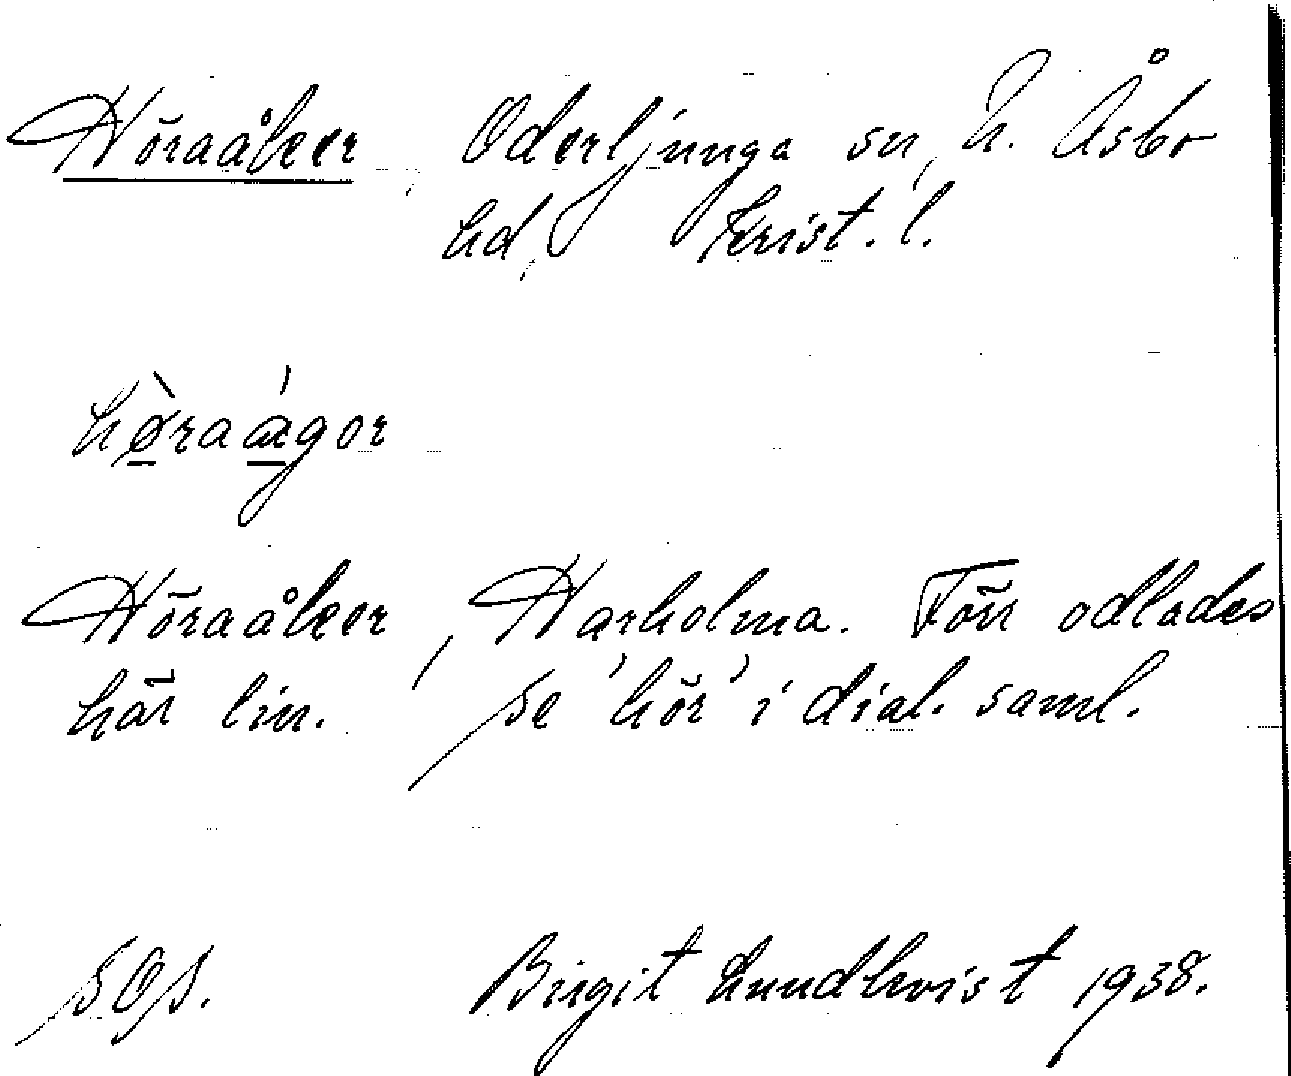 Höraåker, Oderljunga sn, N. Åsbo
hd, Krist. l.
hø̱̀raá̱gor
Höraåker, Harholma. Förr odlades
här lin. Se 'hör' i dial. saml.
SOS. Birgit Lundkvist 1938.